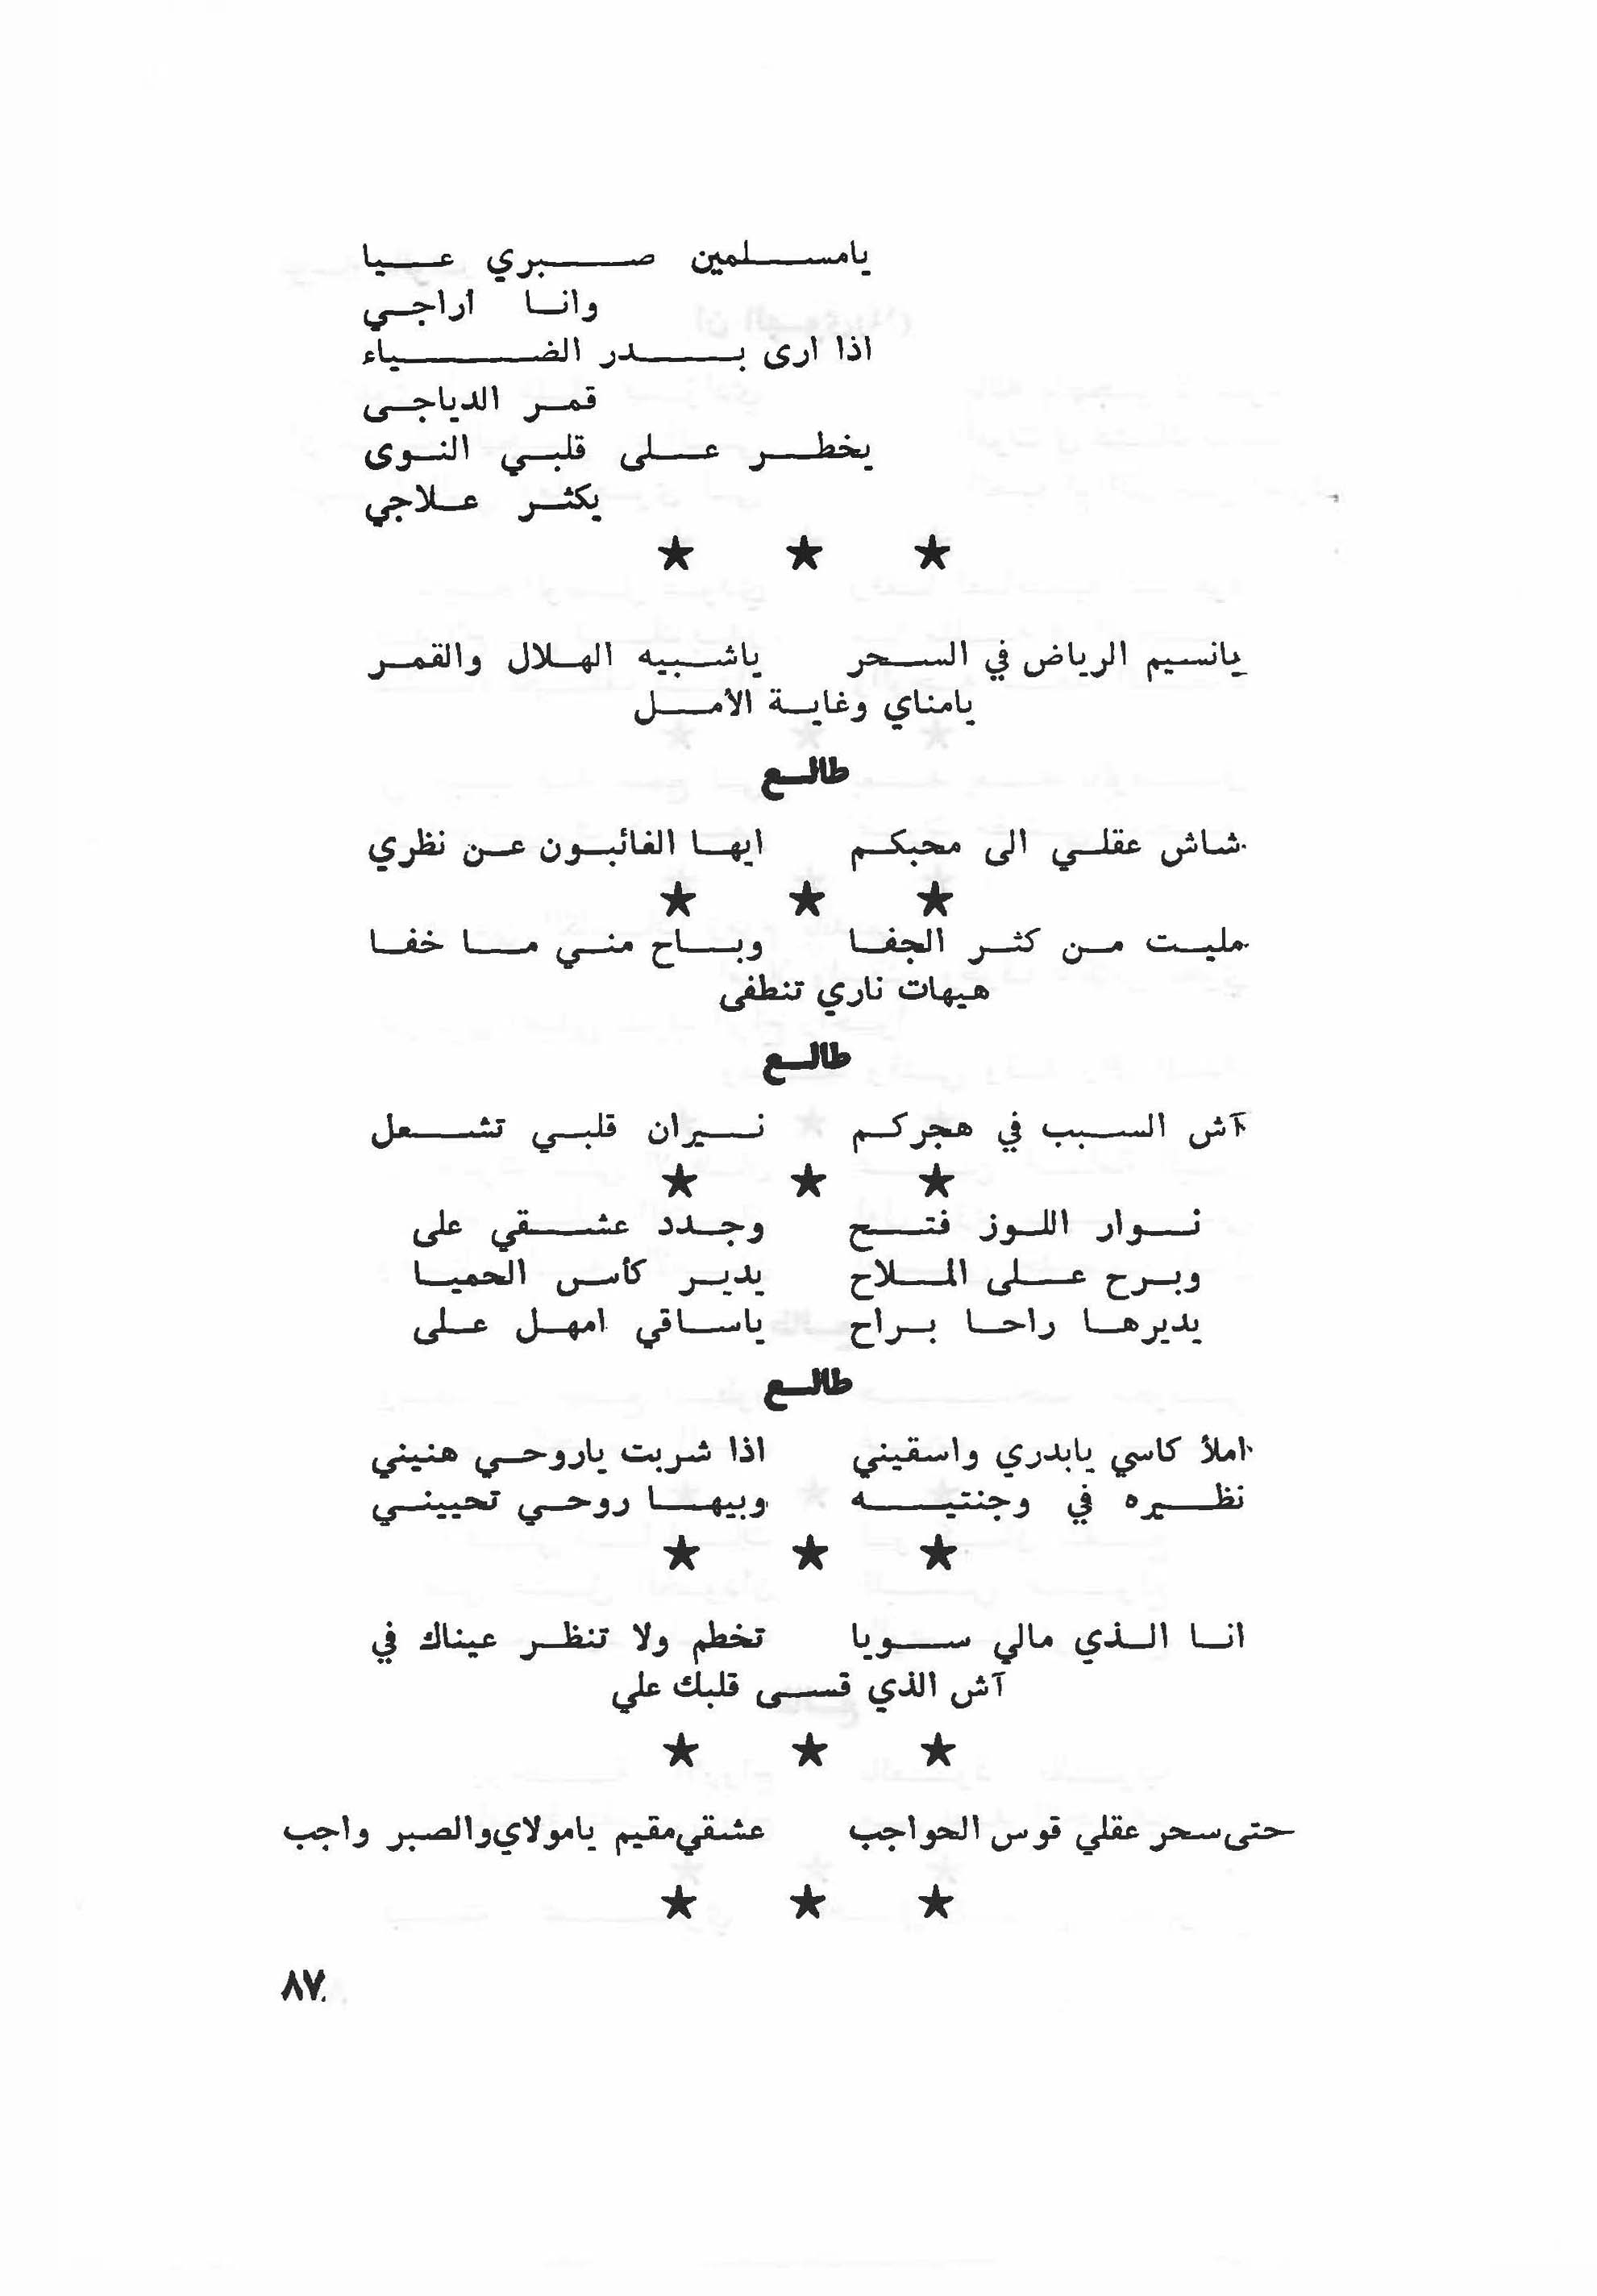 يامسلمين صبري عيا
وانا أراجي
اذا ارى بدر الضياء
قمر الدياجى
يخطر على قلبي النوى
يكثر علاجي
★ ★ ★
يانسيم الرياض في السحر ياشبيه الهلال والقمر
يامناي وغاية الأمل
طالع
شاش عقلي الى محبكم ايها الغائبون عن نظري
★ ★ ★
مليت من كثر الجفا وباح مني ما خفا
هيهات ناري تنطفى
طالع
آش السبب في هجركم نيران قلبي تشعل
★ ★ ★
نوار اللوز فتح وجدد عشقي على
وبرح على الملاح يدير كأس الحميا
يديرها راحا براح ياساقي امهل على
طالع
املأ كاسي يابدري واسقيني اذا شربت ياروحي هنيني
نظيره في وجنتيه وبيها روحي تحييني
★ ★ ★
انا الذي مالي سويا تخطم ولا تنظر عيناك في
آش الذي قسى قلبك علي
★ ★ ★
حتى سحر عقلي قوس الحواجب عشقي مقيم يامولاي والصبر واجب
★ ★ ★
٨٧